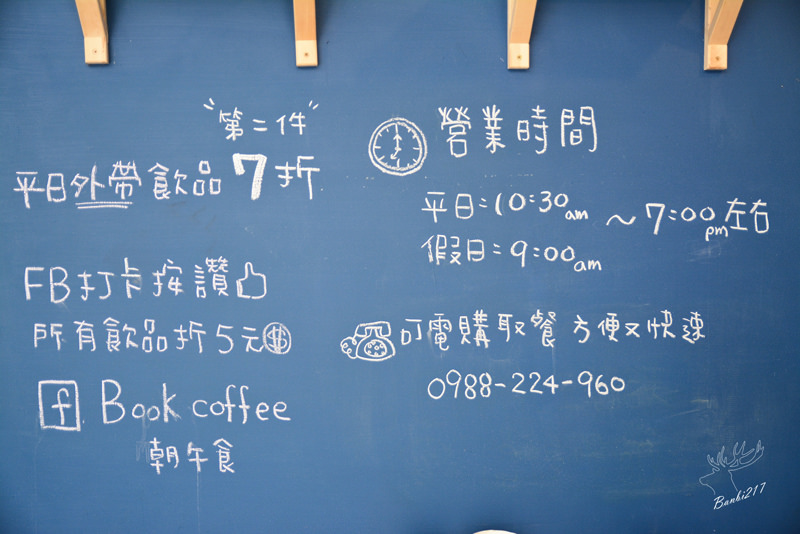 "第二件"
平日外帶飲品7折
FB打卡按讚
所有飲品折5元
f Book coffee
朝午食
營業時間
平日:10:30am ~ 7:00pm左右
假日:9:00am
叮電購取餐 方便又快速
0988-224-960
Banbi217